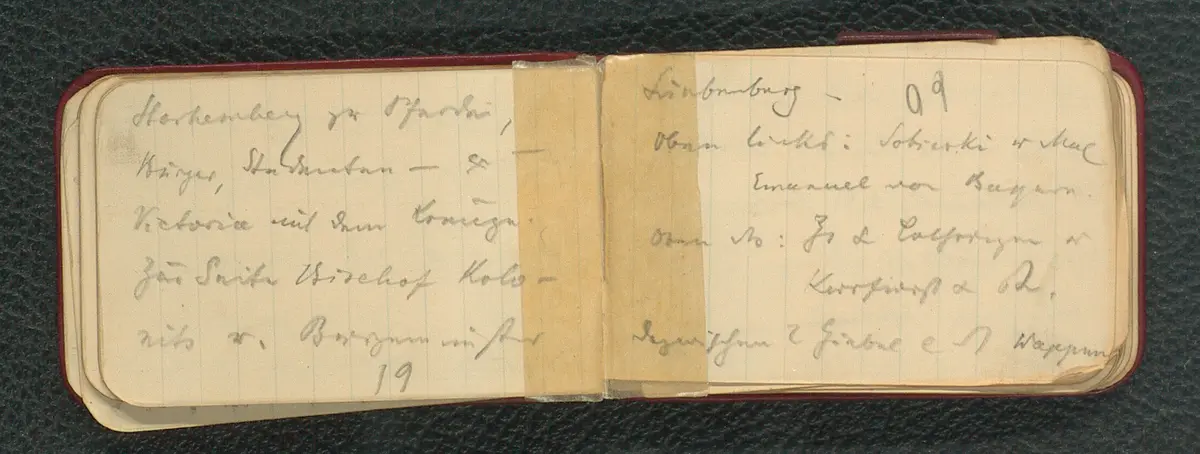 Starhemberg zu Pferde,
Bürger, Studenten –
Victoria mit dem Kreuze.
Zur Seite Bischof Kolo-
nits u. Bürgermeister
19
Liebenberg –
oben links: Sobieski u Max
Emanuel von Bayern.
oben : Lothringen u
Dazwischen Giebel Wappen